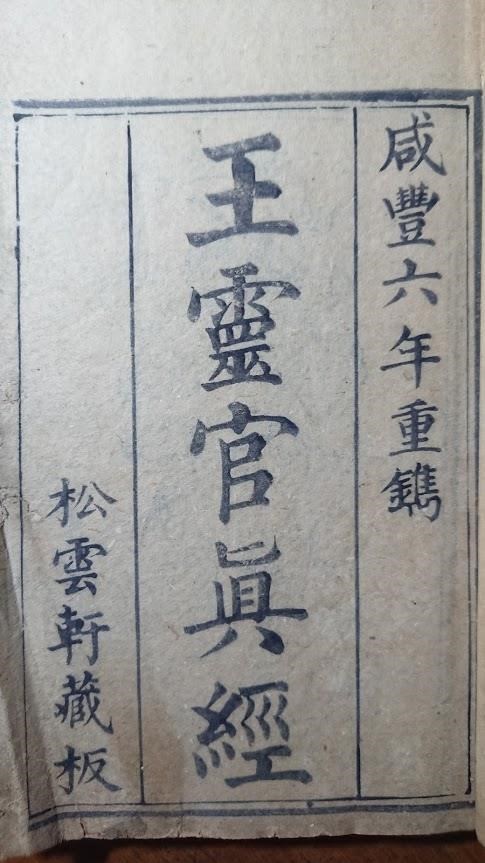 咸豐六年重鐫
王靈官眞經
松雲軒藏板